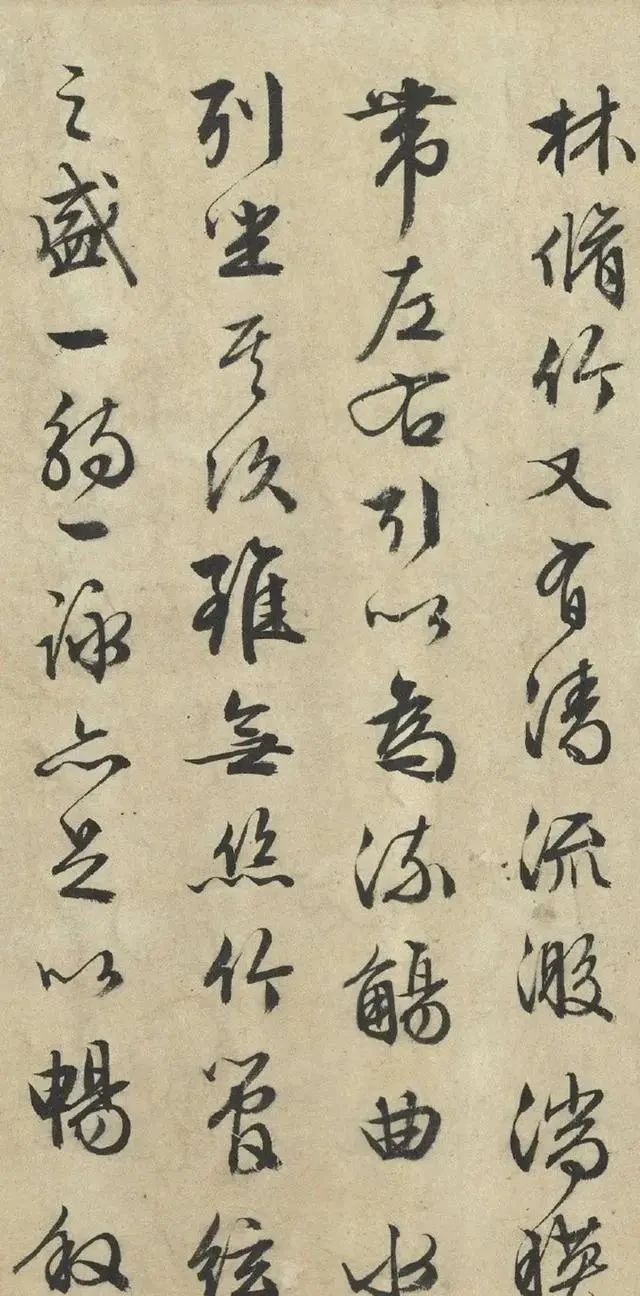 林脩竹又有清流激湍暎
帶左右引以為流觴曲水
列坐其次雖無絲竹管絃
之盛一觴一詠亦足以暢叙